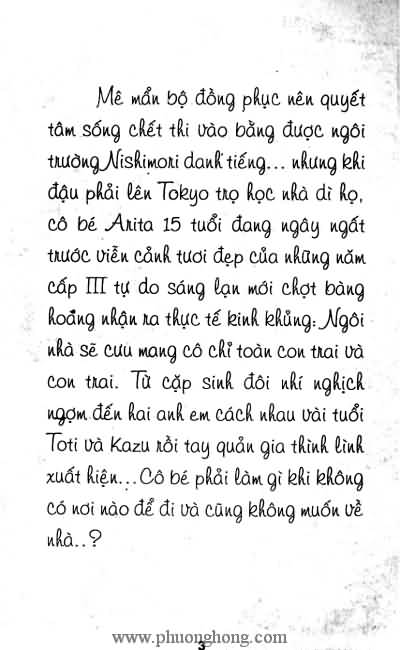 Mê mẩn bộ đồng phục nên quyết
tâm sống chết thi vào bằng được ngôi
trường Nishimori danh tiếng... nhưng khi
đậu phải lên Tokyo trọ học nhà dì họ,
cô bé Arita 15 tuổi đang ngây ngất
trước viễn cảnh tươi đẹp của những năm
cấp III tự do sáng lạn mới chợt bàng
hoàng nhận ra thực tế kinh khủng: Ngôi
nhà sẽ cưu mang cô chỉ toàn con trai và
con trai. Từ cặp sinh đôi nhí nghịch
ngợm đến hai anh em cách nhau vài tuổi
Toti và Kazu rồi tay quản gia thình lình
xuất hiện... Cô bé phải làm gì khi không
có nơi nào để đi và cũng không muốn về
nhà..?
3
www.phuonghong.com